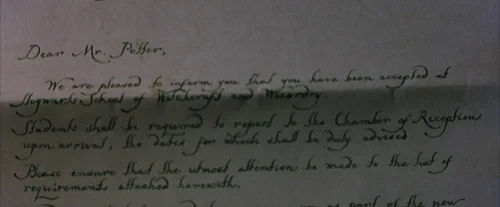 Dear Mr. Potter,
We are pleased to inform you that you have been accepted at
Hogwarts School of Witchcraft and Wizardry.
Students shall be required to report to the Chamber of Reception
upon arrival, the dates for which shall be duly advised
Please ensure that the utmost attention be made to the list of
requirements attached herewith.
as part of the new